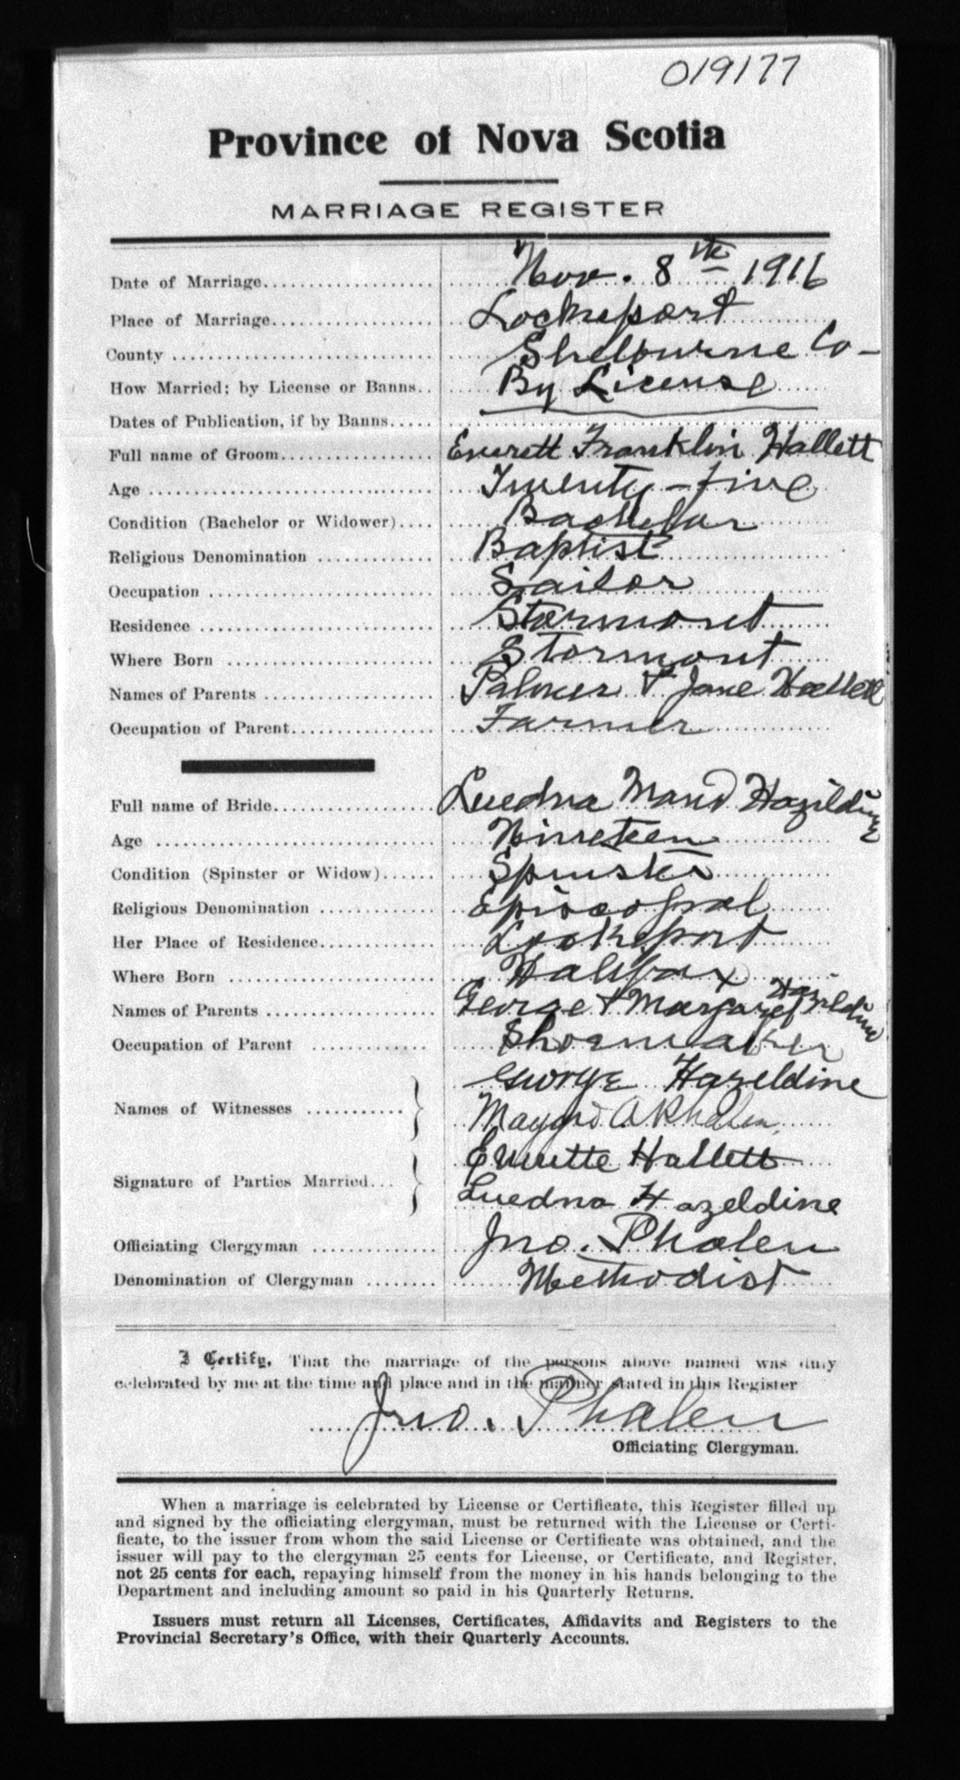 019177
Province of Nova Scotia
MARRIAGE REGISTER
Date of Marriage.................... Nov. 8th 1916
Place of Marriage................... Lockeport
County .............................. Shelburne Co-
How Married; by License or Banns.. By License
Dates of Publication, if by Banns.....
Full name of Groom.................. Everett Franklin Hallett
Age .................................. Twenty-five
Condition (Bachelor or Widower).... Bachelor
Religious Denomination .............. Baptist
Occupation ........................... Sailor
Residence ............................ Stormont
Where Born .......................... Stormont
Names of Parents .................... Palmer & Jane Hallett
Occupation of Parent................. Farmer
Full name of Bride................... Luedna Maud Hazildine
Age .................................. Nineteen
Condition (Spinster or Widow)...... Spinster
Religious Denomination .............. Episcopal
Her Place of Residence.............. Lockeport
Where Born .......................... Halifax
Names of Parents .................... George & Margaret Hazildine
Occupation of Parent .............. Shoemaker
George Hazeldine
Names of Witnesses ............ A Phalen
Everette Hallett
Signature of Parties Married...
Luedna Hazeldine
Officiating Clergyman .............. Jno. Phalen
Denomination of Clergyman ........ Methodist
I Certify, That the marriage of the persons above named was duly
celebrated by me at the time and place and in the manner stated in this Register
Jno. Phalen
Officiating Clergyman.
When a marriage is celebrated by License or Certificate, this Register filled up
and signed by the officiating clergyman, must be returned with the License or Certi-
ficate, to the issuer from whom the said License or Certificate was obtained, and the
issuer will pay to the clergyman 25 cents for License, or Certificate, and Register,
not 25 cents for each, repaying himself from the money in his hands belonging to the
Department and including amount so paid in his Quarterly Returns.
Issuers must return all Licenses, Certificates, Affidavits and Registers to the
Provincial Secretary's Office, with their Quarterly Accounts.